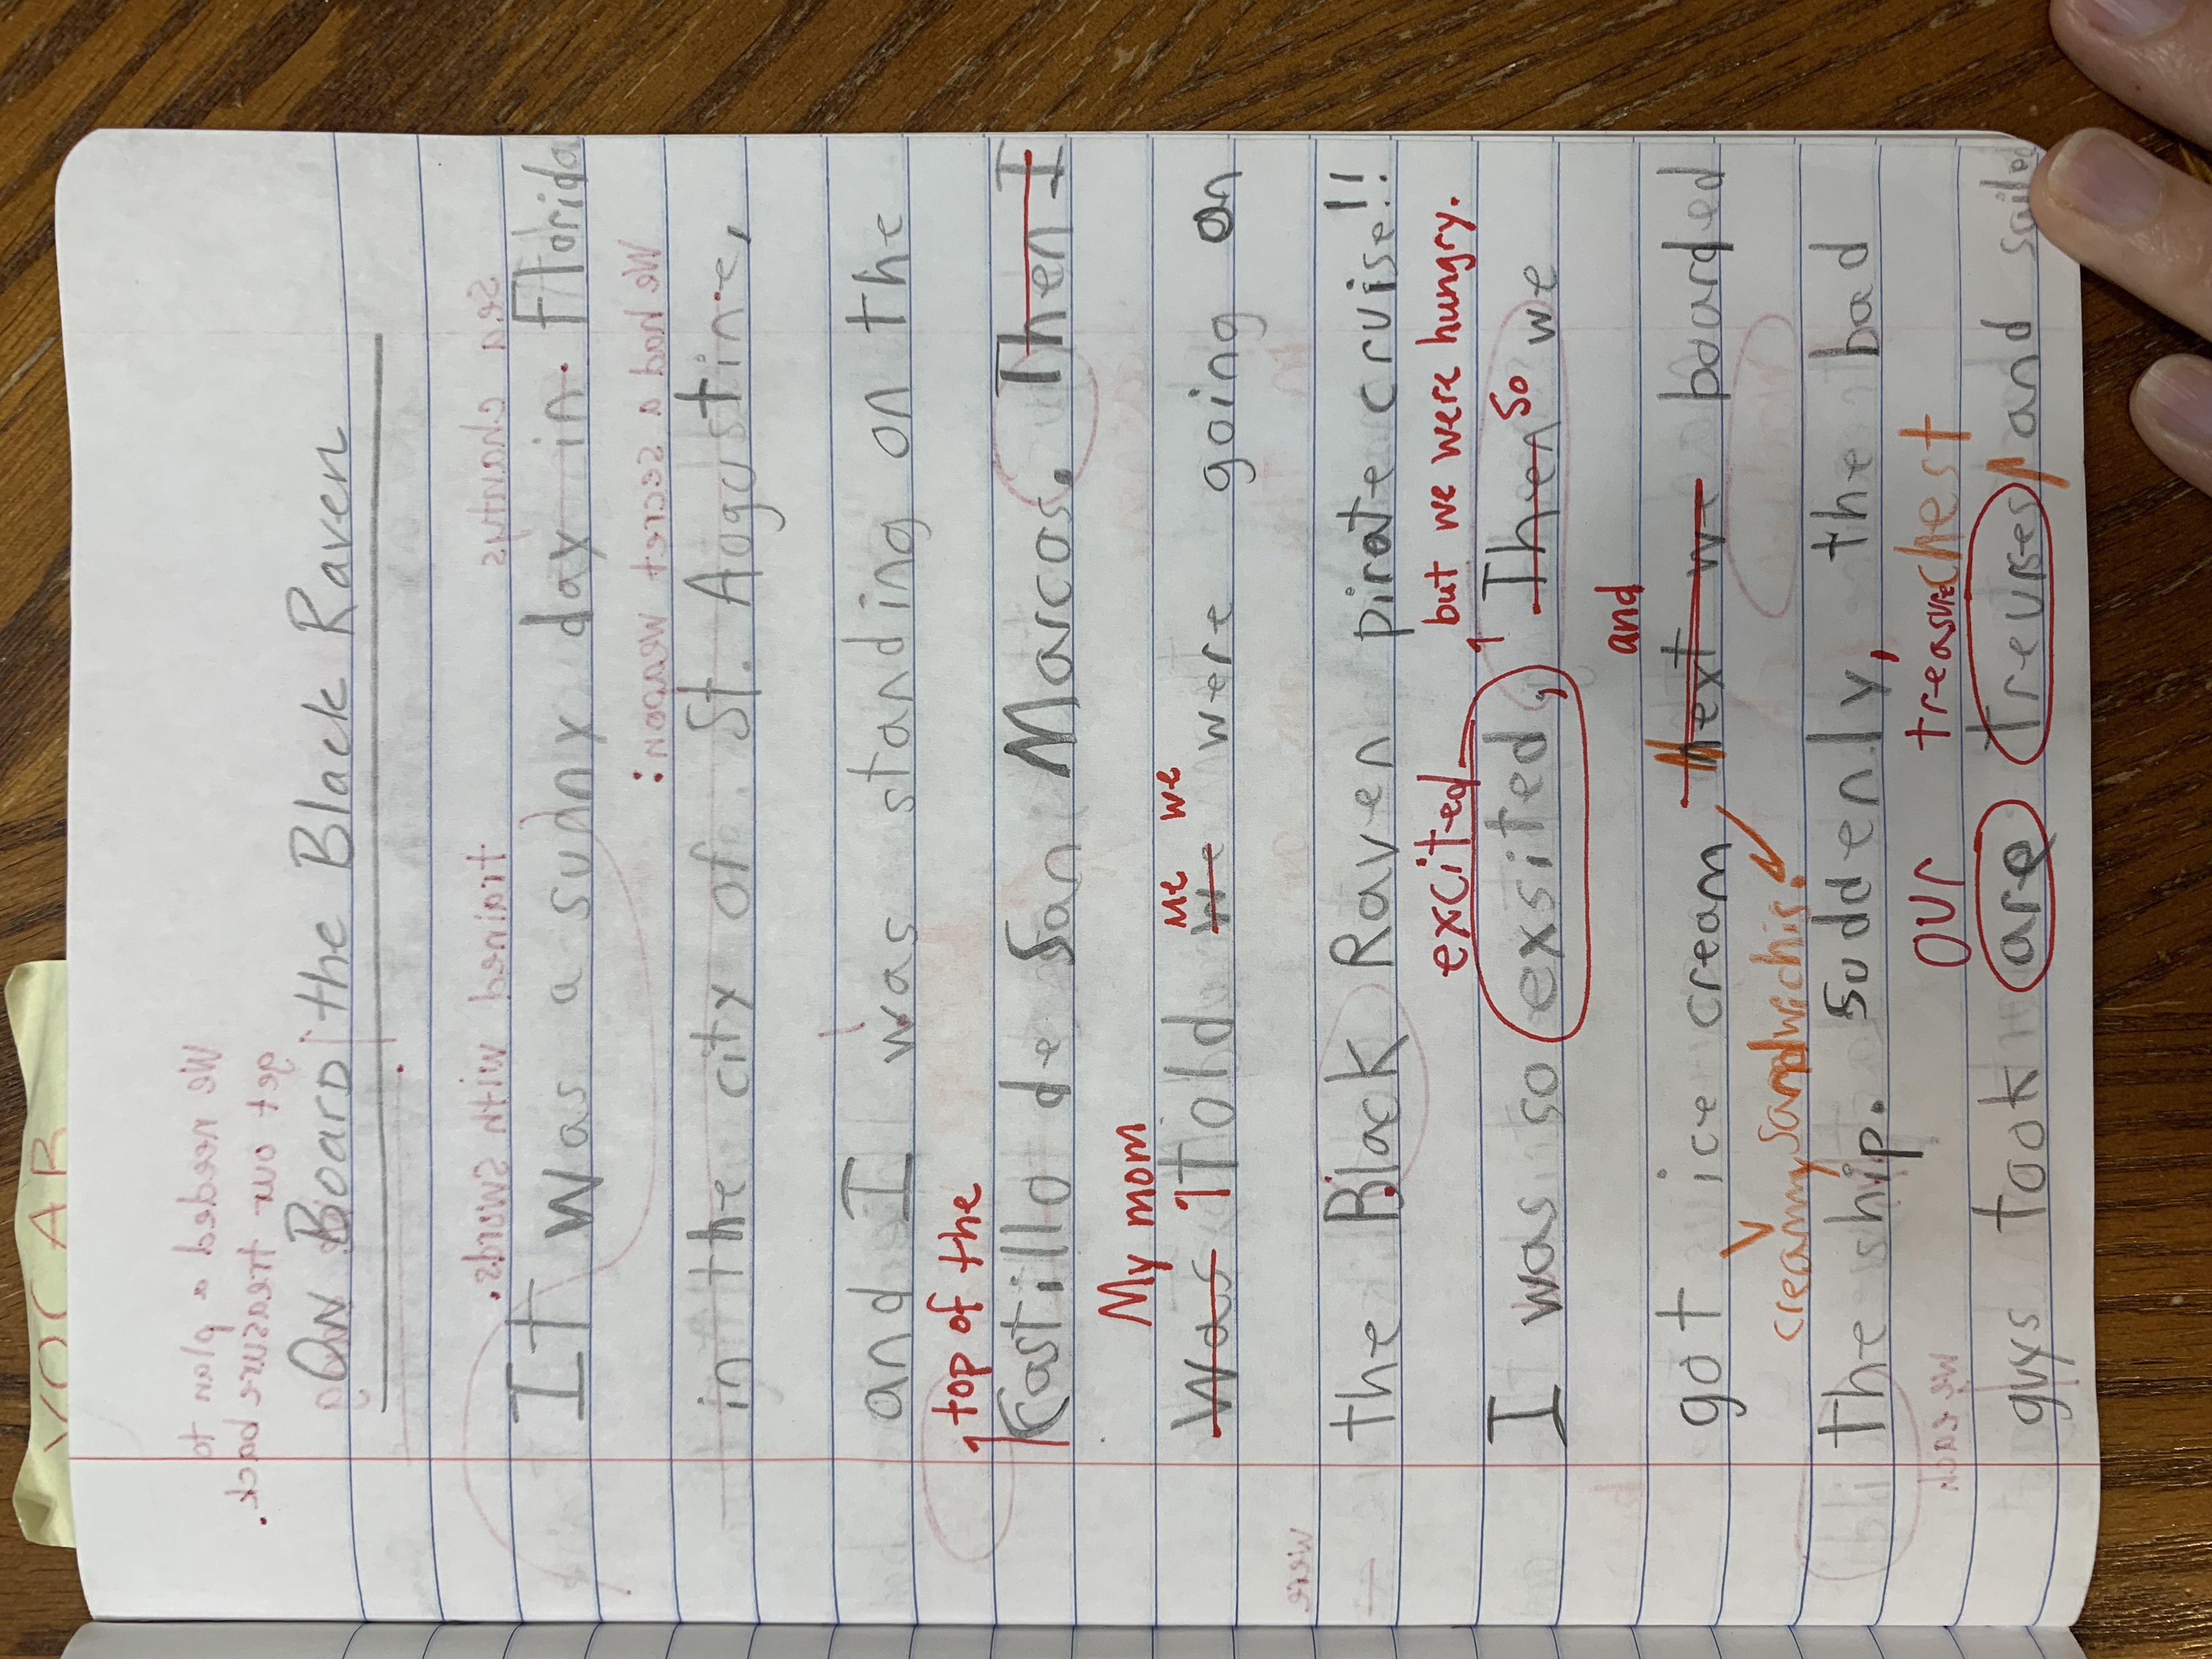 VOCAB
On Board the Black Raven
It was a sunny day in. Florida
in the city of. St. Aogustine,
and I was standing on the
top of the
Castillo de San Marcos. Then I
My mom me we
was told we were going on
the Black Raven pirate cruise!!
excited but we were hungry.
I was so exsited, Then so we
and
got ice cream next we boarded
creammy sandwichis.
the ship. Suddenly, the bad
our treasure chest
guys took are treurses and sailed